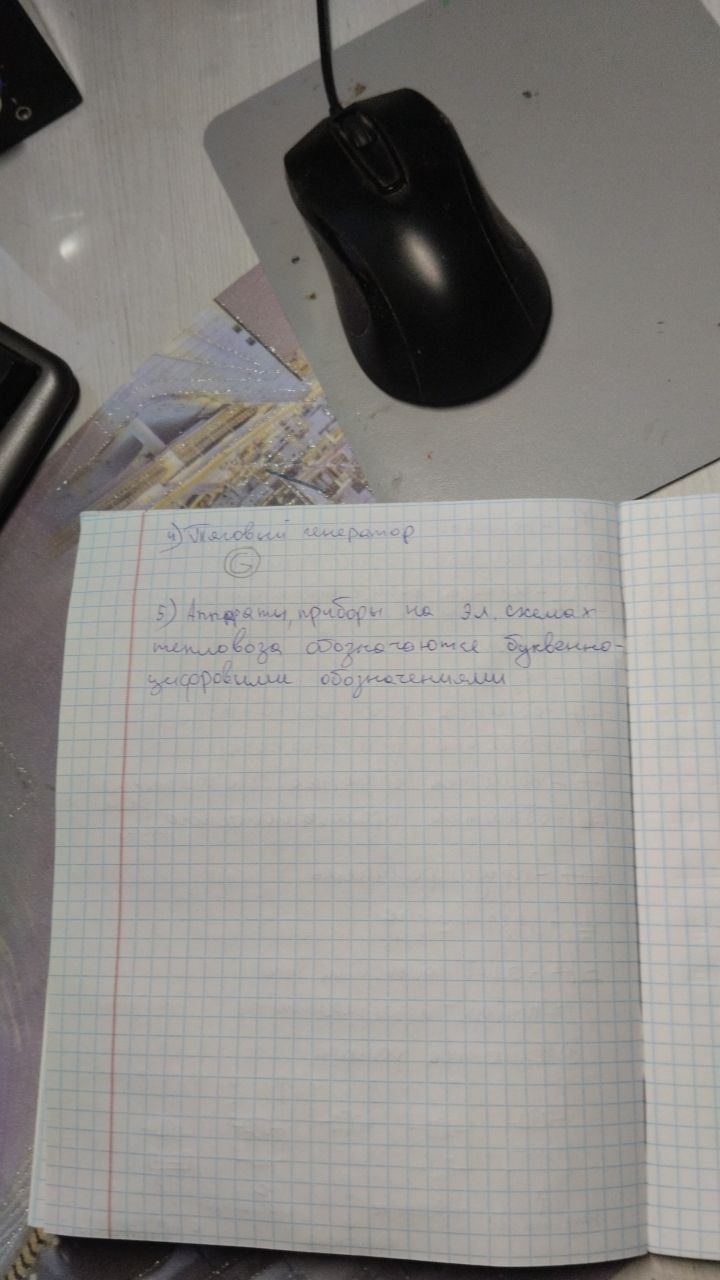 4) Тяговый генератор
G
5) Аппараты, приборы на эл. схемах
тепловоза обозначаются буквенно-
цифровыми обозначениями